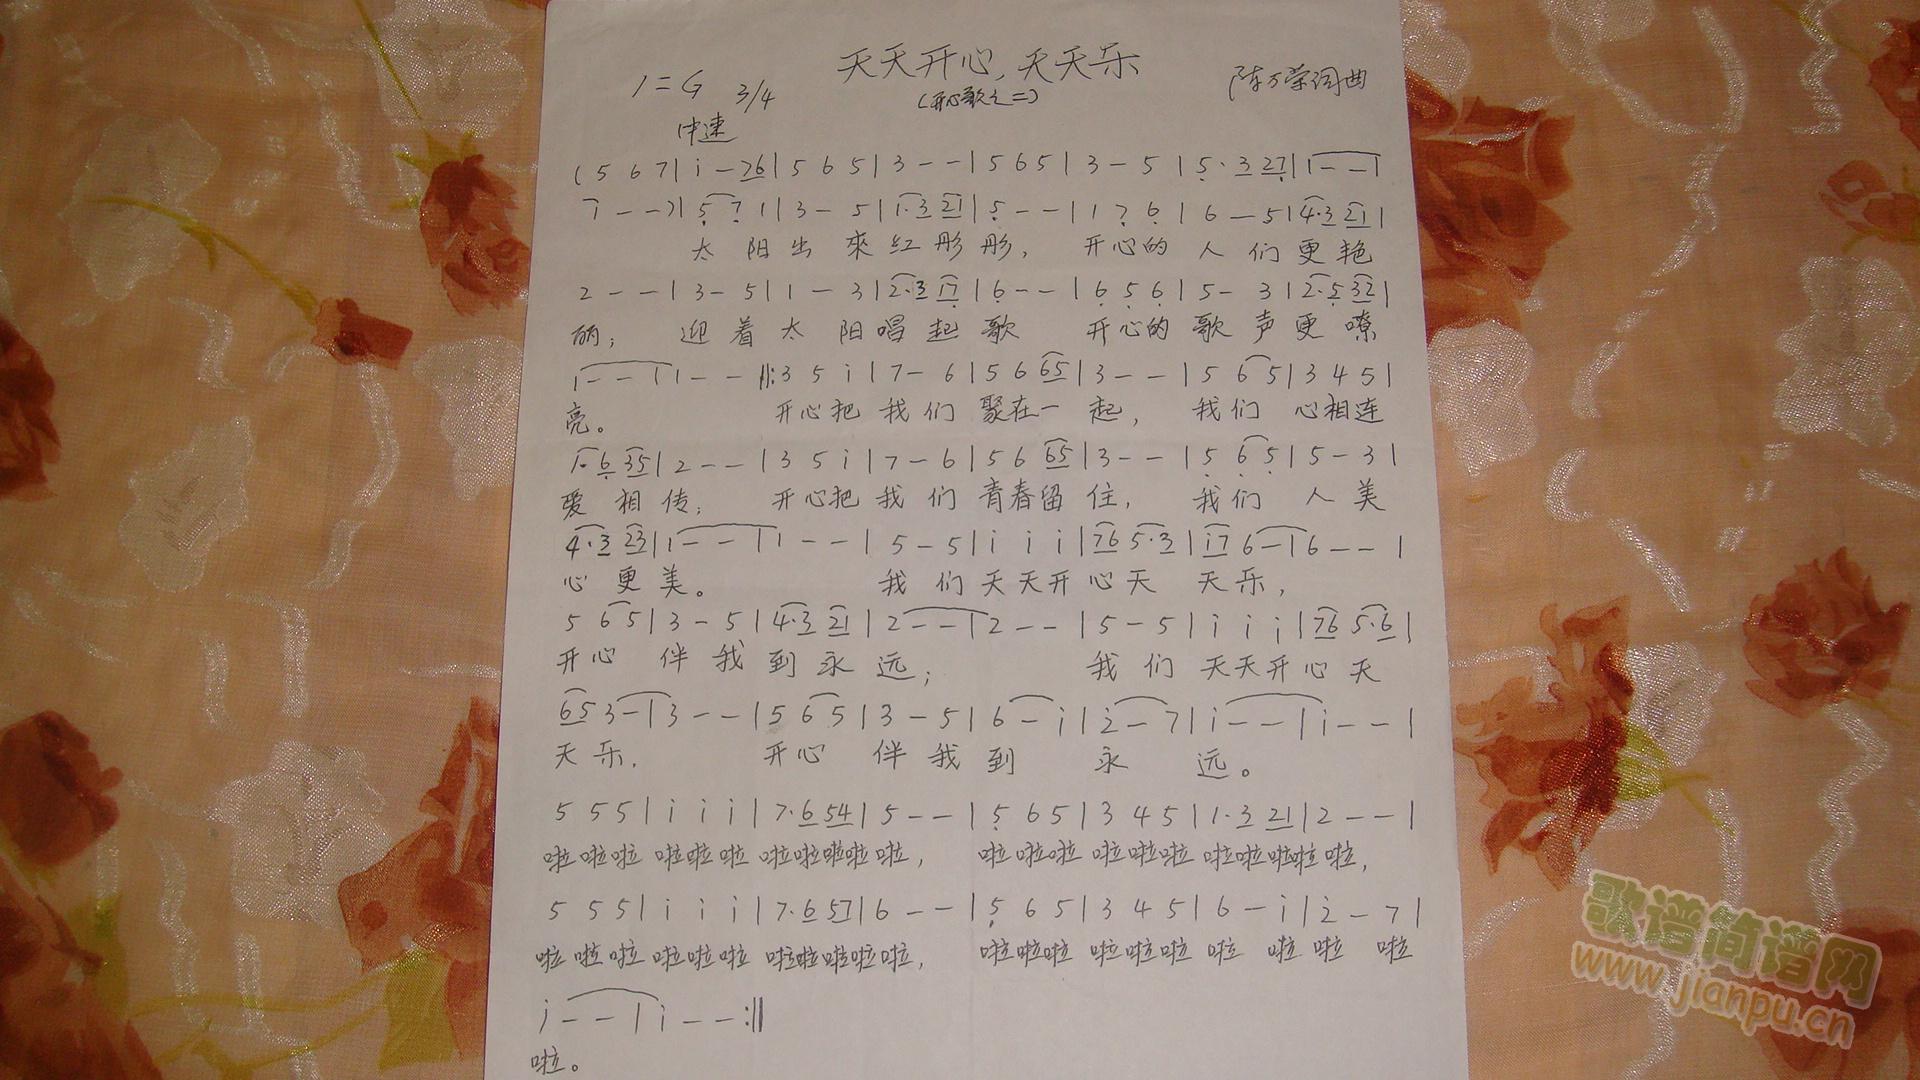 天天开心,天天乐
1=G 3/4
(开心歌之二)
陈万荣词曲
中速
(5 6 7| i - 76| 5 6 5| 3 - -| 5 6 5| 3 - 5| 5· 3 27| 1 - -|
1 - -)| 5 7 1| 3 - 5| 1·3 21| 5 - -| 1 7 6| 6 - 5| 4·3 21|
太阳出來红彤彤, 开心的人们更艳
2 - -| 3 - 5| 1 - 3| 2·3 17| 6 - -| 6 5 6| 5 - 3| 2·5 32|
丽; 迎着太阳唱起歌 开心的歌声更嘹
1 - -| 1 - -‖: 3 5 i| 7 - 6| 5 6 65| 3 - -| 5 6 5| 3 4 5|
亮。 开心把我们聚在一起, 我们心相连
1·6 35| 2 - -| 3 5 i| 7 - 6| 5 6 65| 3 - -| 5 6 5| 5 - 3|
爱相传; 开心把我们青春留住, 我们人美
4·3 23| 1 - -| 1 - -| 5 - 5| i i i| 76 5·3| i7 6 -| 6 - -|
心更美。 我们天天开心天天乐,
5 6 5| 3 - 5| 4·3 21| 2 - -| 2 - -| 5 - 5| i i i| 76 5·6|
开心伴我到永远; 我们天天开心天
65 3 -| 3 - -| 5 6 5| 3 - 5| 6 - i| 2 - 7| i - -| i - -|
天乐. 开心伴我到永远。
5 5 5| i i i| 7·6 54| 5 - -| 5 6 5| 3 4 5| 1·3 21| 2 - -|
啦啦啦 啦啦啦 啦啦啦啦啦, 啦啦啦 啦啦啦 啦啦啦啦啦,
5 5 5| i i i| 7·6 57| 6 - -| 5 6 5| 3 4 5| 6 - i| 2 - 7|
啦啦啦 啦啦啦 啦啦啦啦啦, 啦啦啦 啦啦啦 啦 啦啦 啦
i - -| i - -:‖
啦。
歌谱简谱网
www.jianpu.cn